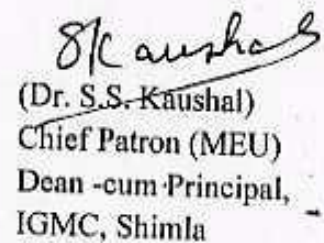 SKaushal
(Dr. S.S. Kaushal)
Chief Patron (MEU)
Dean -cum-Principal,
IGMC, Shimla